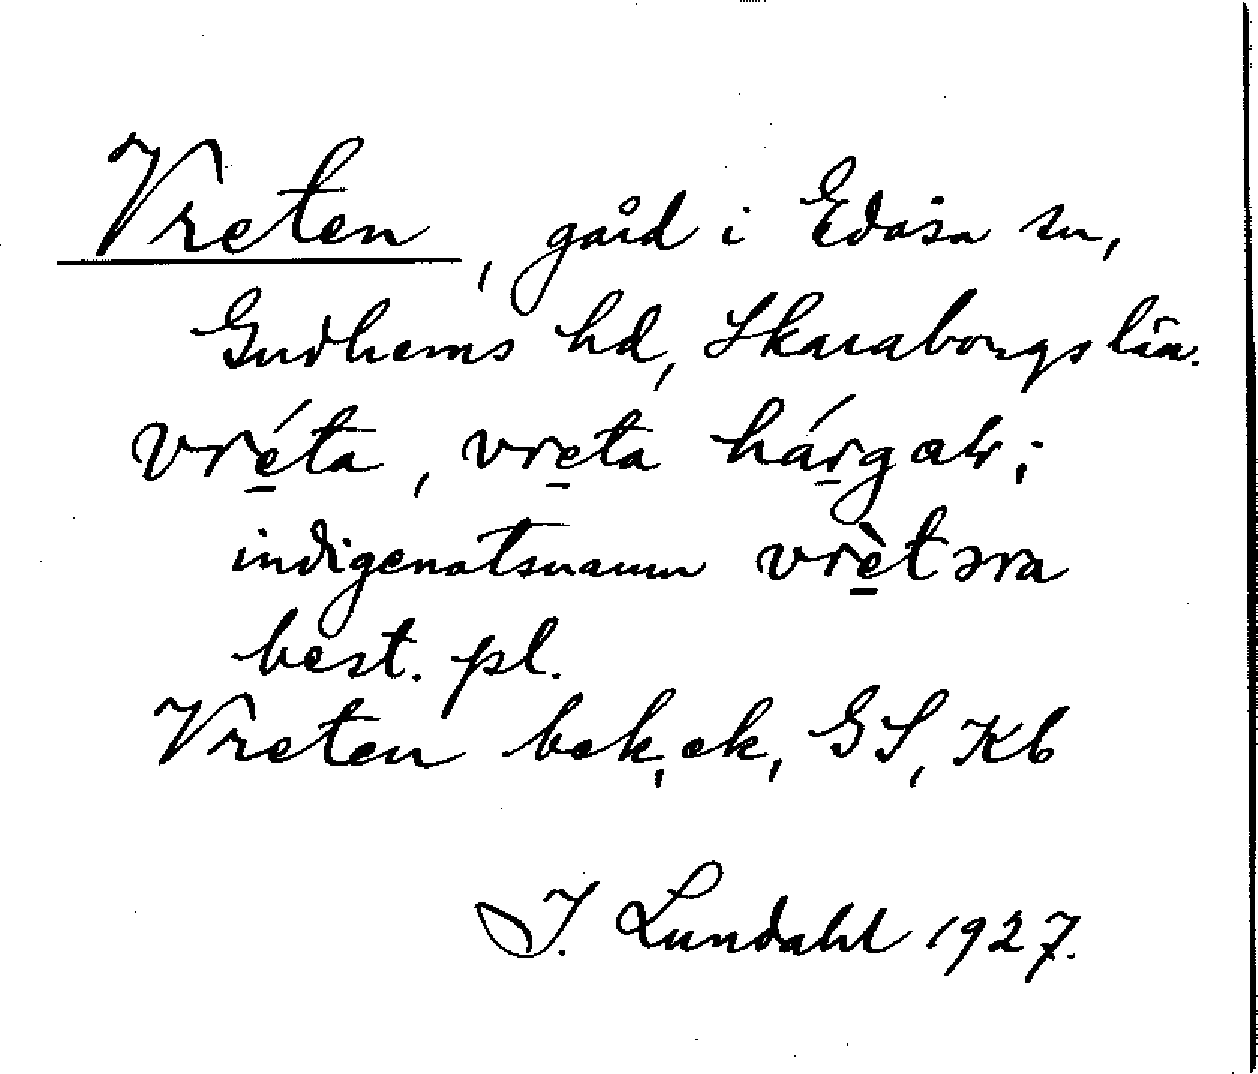 Vreten, gård i Edåsa sn,
Gudhems hd, Skaraborgs län.
vré̱ta, vre̱ta hárg̱ạr;
indigenatsnamn vrè̱tɔra
best. pl.
Vreten bek, ek, GS, Kb
I. Lundahl 1927.